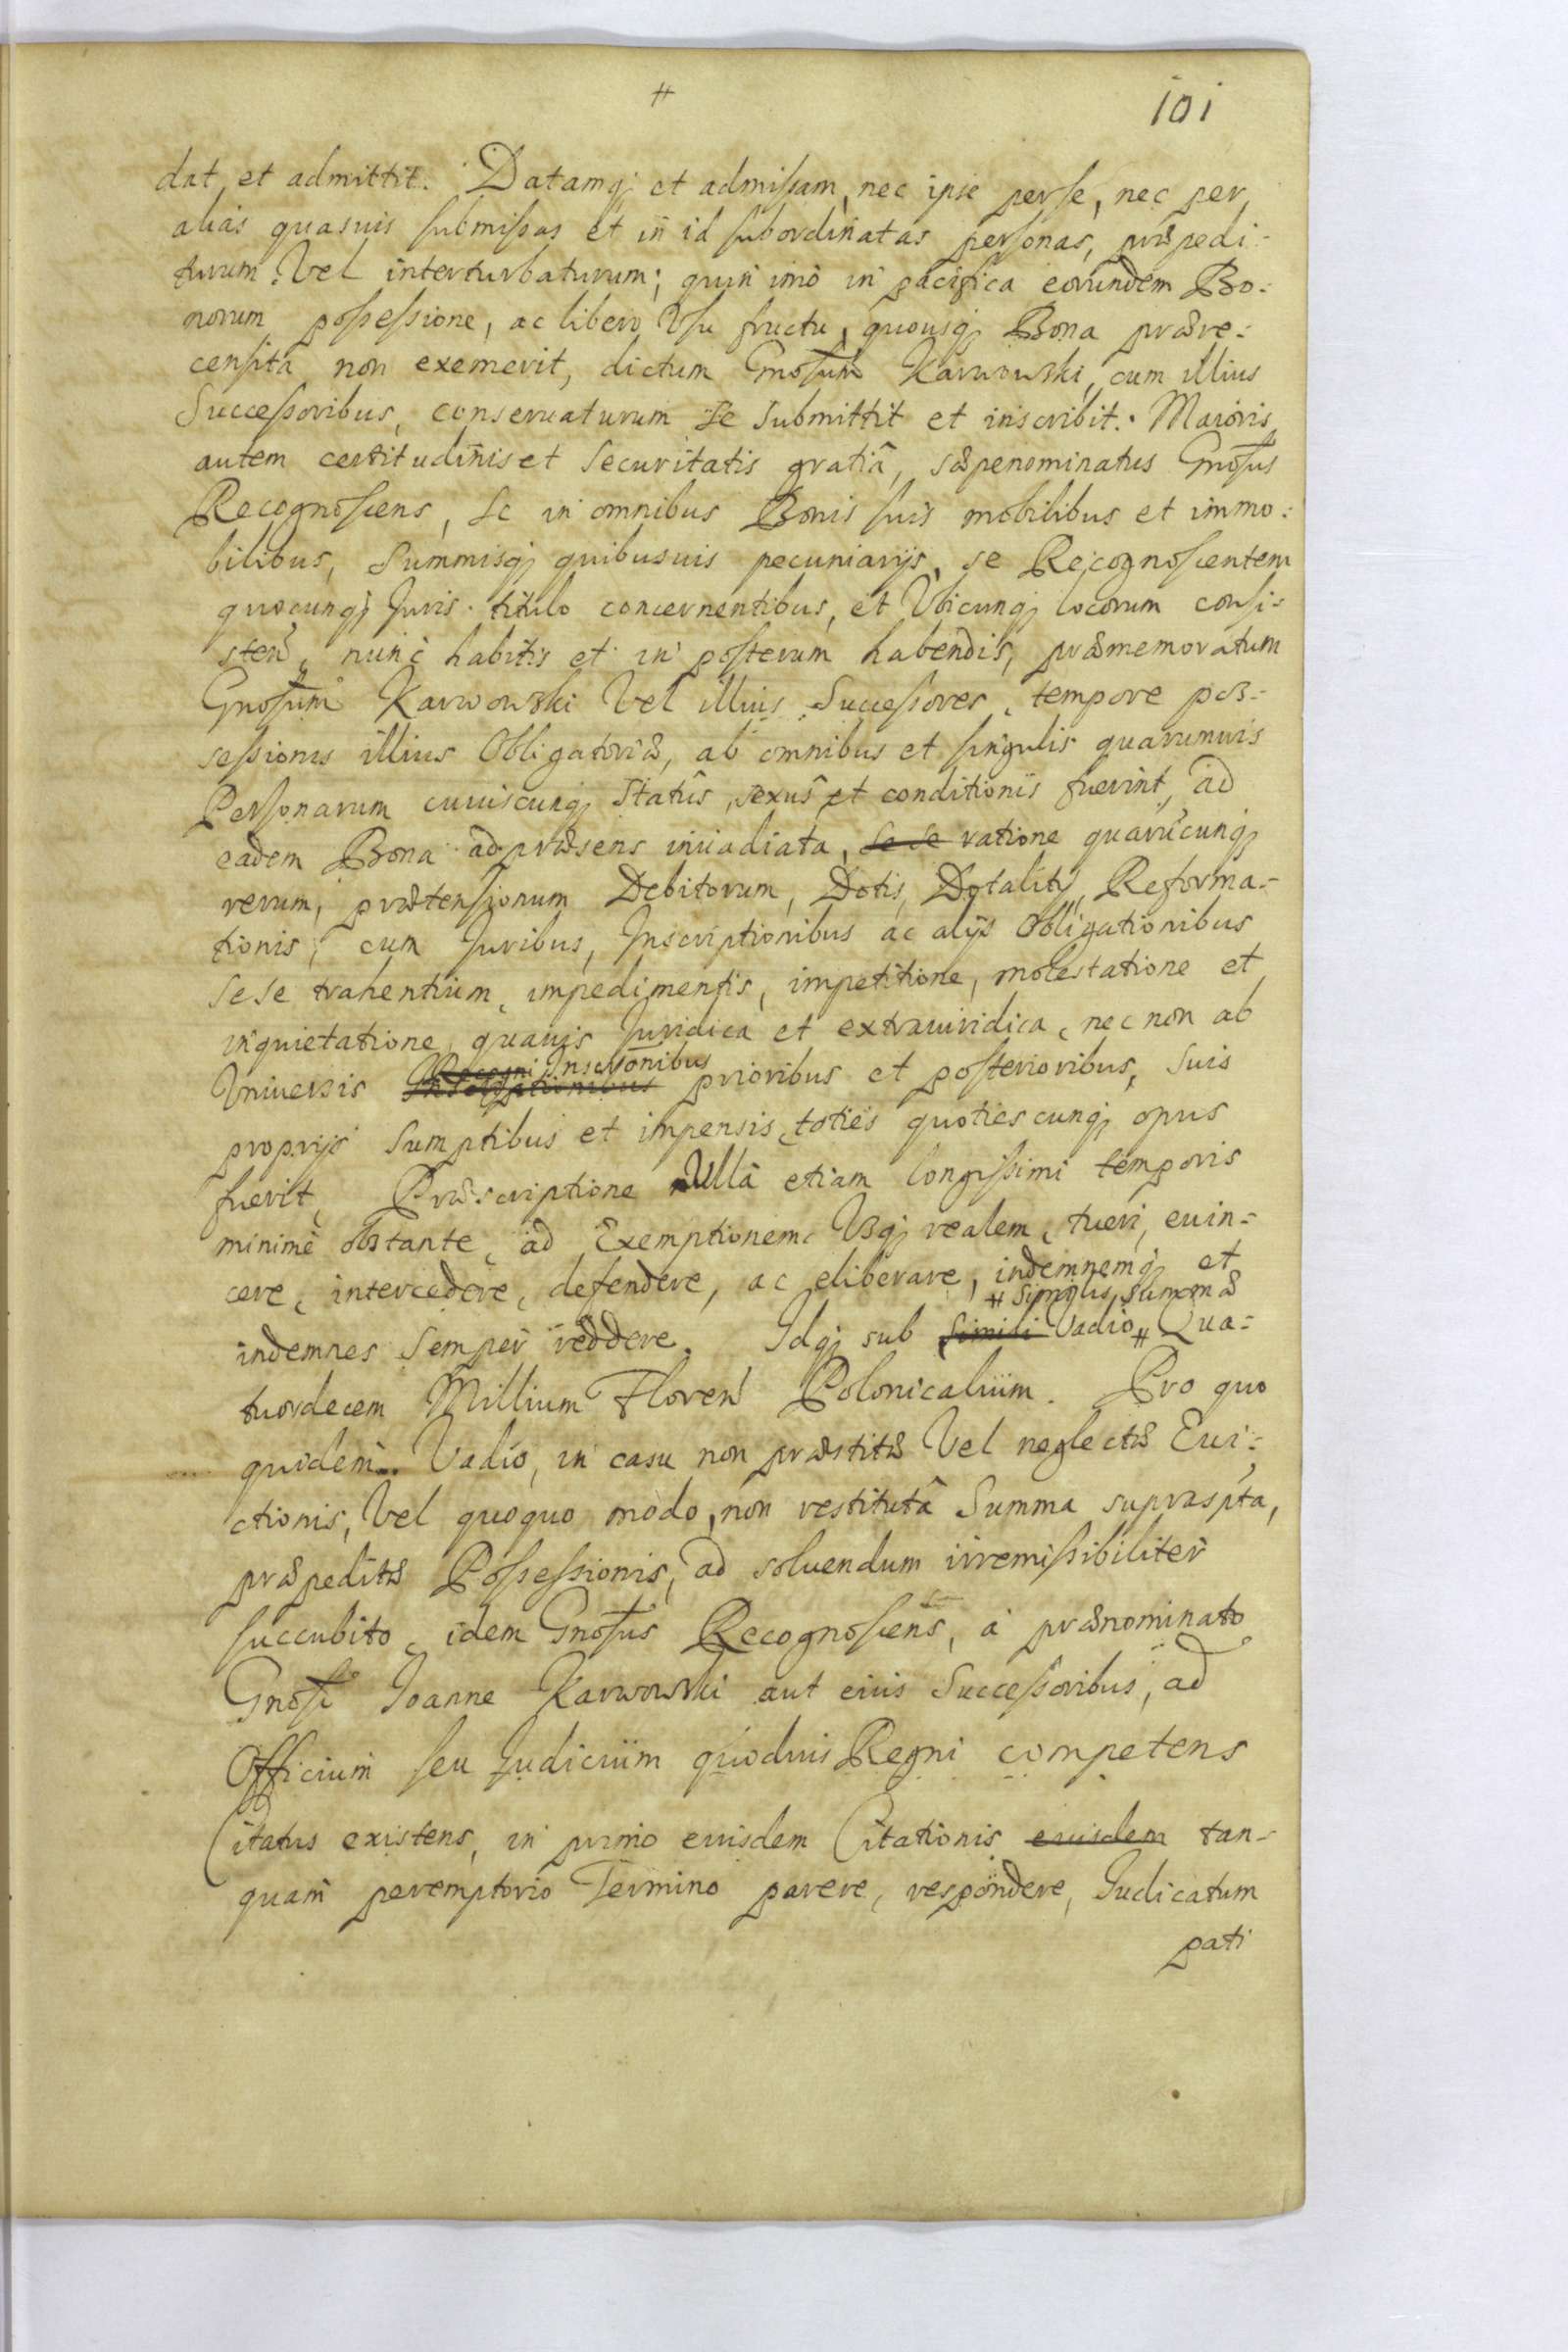 #
101
dat, et admittit. Datamq; et admiſsam, nec ipse per ſe, nec per
alias quasuis ſubmiſsas et in id ſubordinatas perſonas, præpedi-
turum Vel interturbaturum; quin imò in pacifica eorundem Bo-
norum poſseſsione, ac libero Vſu fructu, quousq; Bona prære-
cenſita non exemerit, dictum Gnoſum Karwowski, cum illius
Succeſsoribus, conseruaturum se submittit et inscribit. Maioris
autem certitudinis et Securitatis gratiâ, sæpenominatus Gnoſus
Recognoſcens, Se in omnibus Bonis ſuis mobilibus et immo-
bilibus, Summisq; quibusuis pecuniarijs, se Recognoſcentem
quocunq; Juris titulo concernentibus, et Vbicunq; locorum conſi-
sten, nunc habitis et in poſterum habendis, præmemoratum
Gnoſum Karwowski Vel illius Succeſsores, tempore pos-
seſsionis illius Obligatoriæ, ab omnibus et ſingulis quarumuis
Perſonarum cuiuscunq; Statûs, sexûs et conditionis fuerint, ad
eadem Bona ad præsens inuadiata, se se ratione quarũcunq;
rerum, prætenſionum Debitorum, Dotis, Dotalitij, Reforma-
tionis, cum Juribus, Inscriptionibus ac alijs Obligationibus
sese trahentium, impedimentis, impetitione, molestatione et
inquietatione, quauis Juridica et extraiuridica, nec non ab
Recogni Inscrõnibus
Vniuersis prioribus et poſterioribus, suis
proprijs Sumptibus et impensis, toties quotiescunq; opus
fuerit, Præscriptione Ullâ etiam longiſsimi temporis
minimè obstante, ad Exemptionem Vsq; realem, tueri, euin-
cere, intercedere, defendere, ac eliberare, indemnemq; et
# Similis Summæ
indemnes Semper reddere. Idq; sub Simili Vadio # Qua-
tuordecem Millium Floren Polonicalium. Pro quo
quidem Vadio, in casu non præstitæ Vel neglectæ Eui-
ctionis, Vel quoquo modo, non restitutâ Summa suprasp̃ta,
præpeditæ Poſseſsionis, ad soluendum irremiſsibiliter
ſuccubito, idem Gnoſus Recognoſcens, à prænominato
Gnoſi Joanne Karwowski aut eius Succeſsoribus, ad
Officium ſeu Judicium quoduis Regni competens
Citatus existens, in primo eiusdem Citationis eiusdem tan-
quam peremptorio Termino parere, respondere, Judicatum
pati